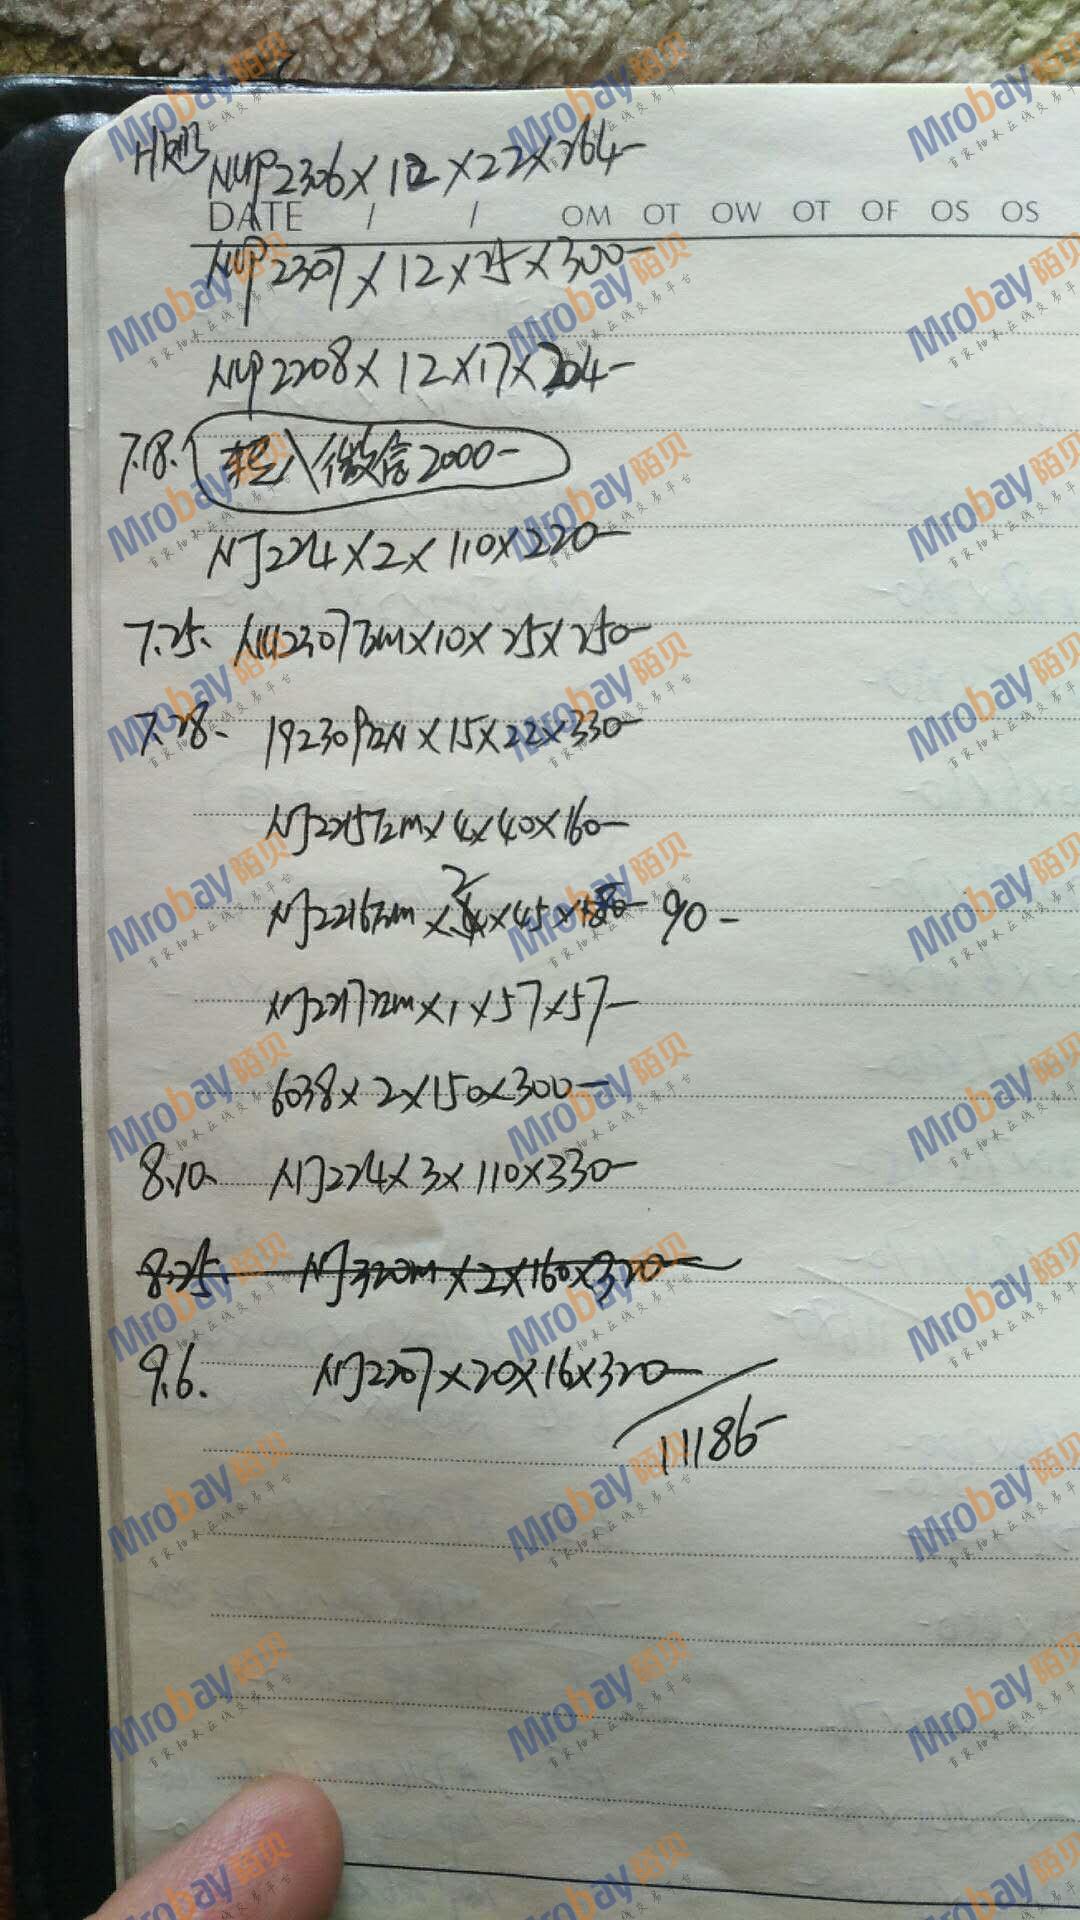 NUP2306×12×22×264-
DATE / / OM OT OW OT OF OS OS
NUP2307×12×25×300-
NUP2208×12×17×204-
7.18. 转入微信2000-
NJ224×2×110×220-
7.25. NU2307m×10×25×250-
7.28. 19230 ×15×22×330-
NJ2215m×4×40×160-
NJ2216m×2×45×180- 90-
NJ2217m×1×57×57-
6038×2×150×300-
8.10. NJ224×3×110×330-
8.25. NJ320m×2×160×320-
9.6. NJ2207×20×16×320-
11186-
Mrobay陌贝
首家轴承在线交易平台